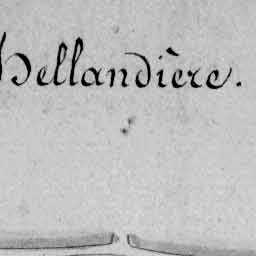 Hellandière.